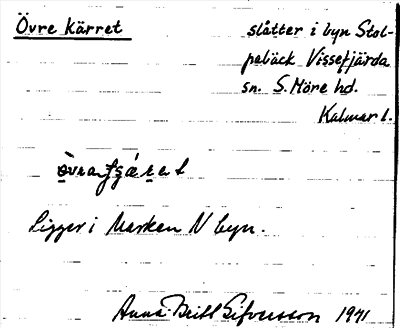 Övre Kärret
slåtter i byn Stol-
pabäck Vissefjärda
sn. S. Möre hd.
Kalmar l.
Ligger i Marken N byn.
Anna-Britt Sifversson 1971